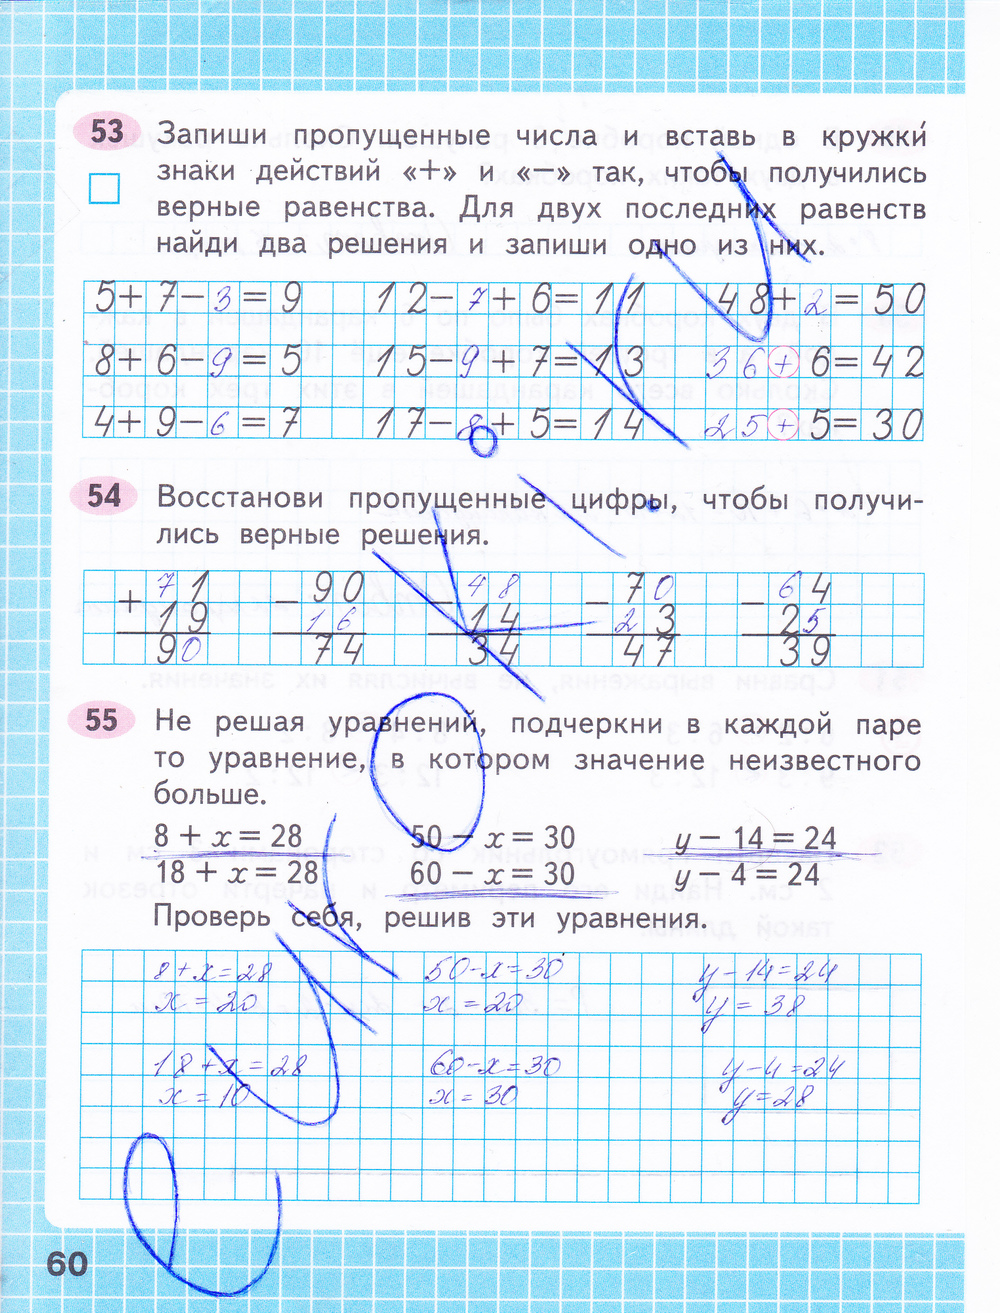 53 Запиши пропущенные числа и вставь в кружки́
знаки действий «+» и «−» так, чтобы получились
верные равенства. Для двух последних равенств
найди два решения и запиши одно из них.
5+7−3=9 12−7+6=11 48+2=50
8+6−9=5 15−9+7=13 36+6=42
4+9−6=7 17−8+5=14 25+5=30
54 Восстанови пропущенные цифры, чтобы получи-
лись верные решения.
71 90 48 70 64
+ − − − −
19 16 14 23 25
90 74 34 47 39
55 Не решая уравнений, подчеркни в каждой паре
то уравнение, в котором значение неизвестного
больше.
8 + x = 28 50 − x = 30 y − 14 = 24
18 + x = 28 60 − x = 30 y − 4 = 24
Проверь себя, решив эти уравнения.
8+x=28 50−x=30 y−14=24
x=20 x=20 y=38
18+x=28 60−x=30 y−4=24
x=10 x=30 y=28
60